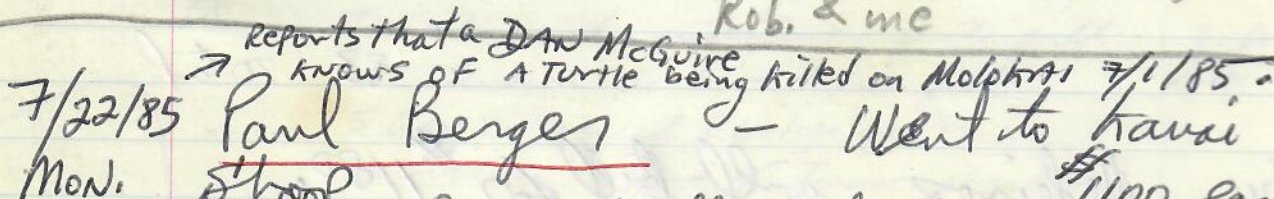 Rob. & me
Reports that a DAN McGuire
↗ KNOWS OF A TURTLE being killed on Molokai 7/1/85.
7/22/85 Paul Berger – Went to Kauai
MON.